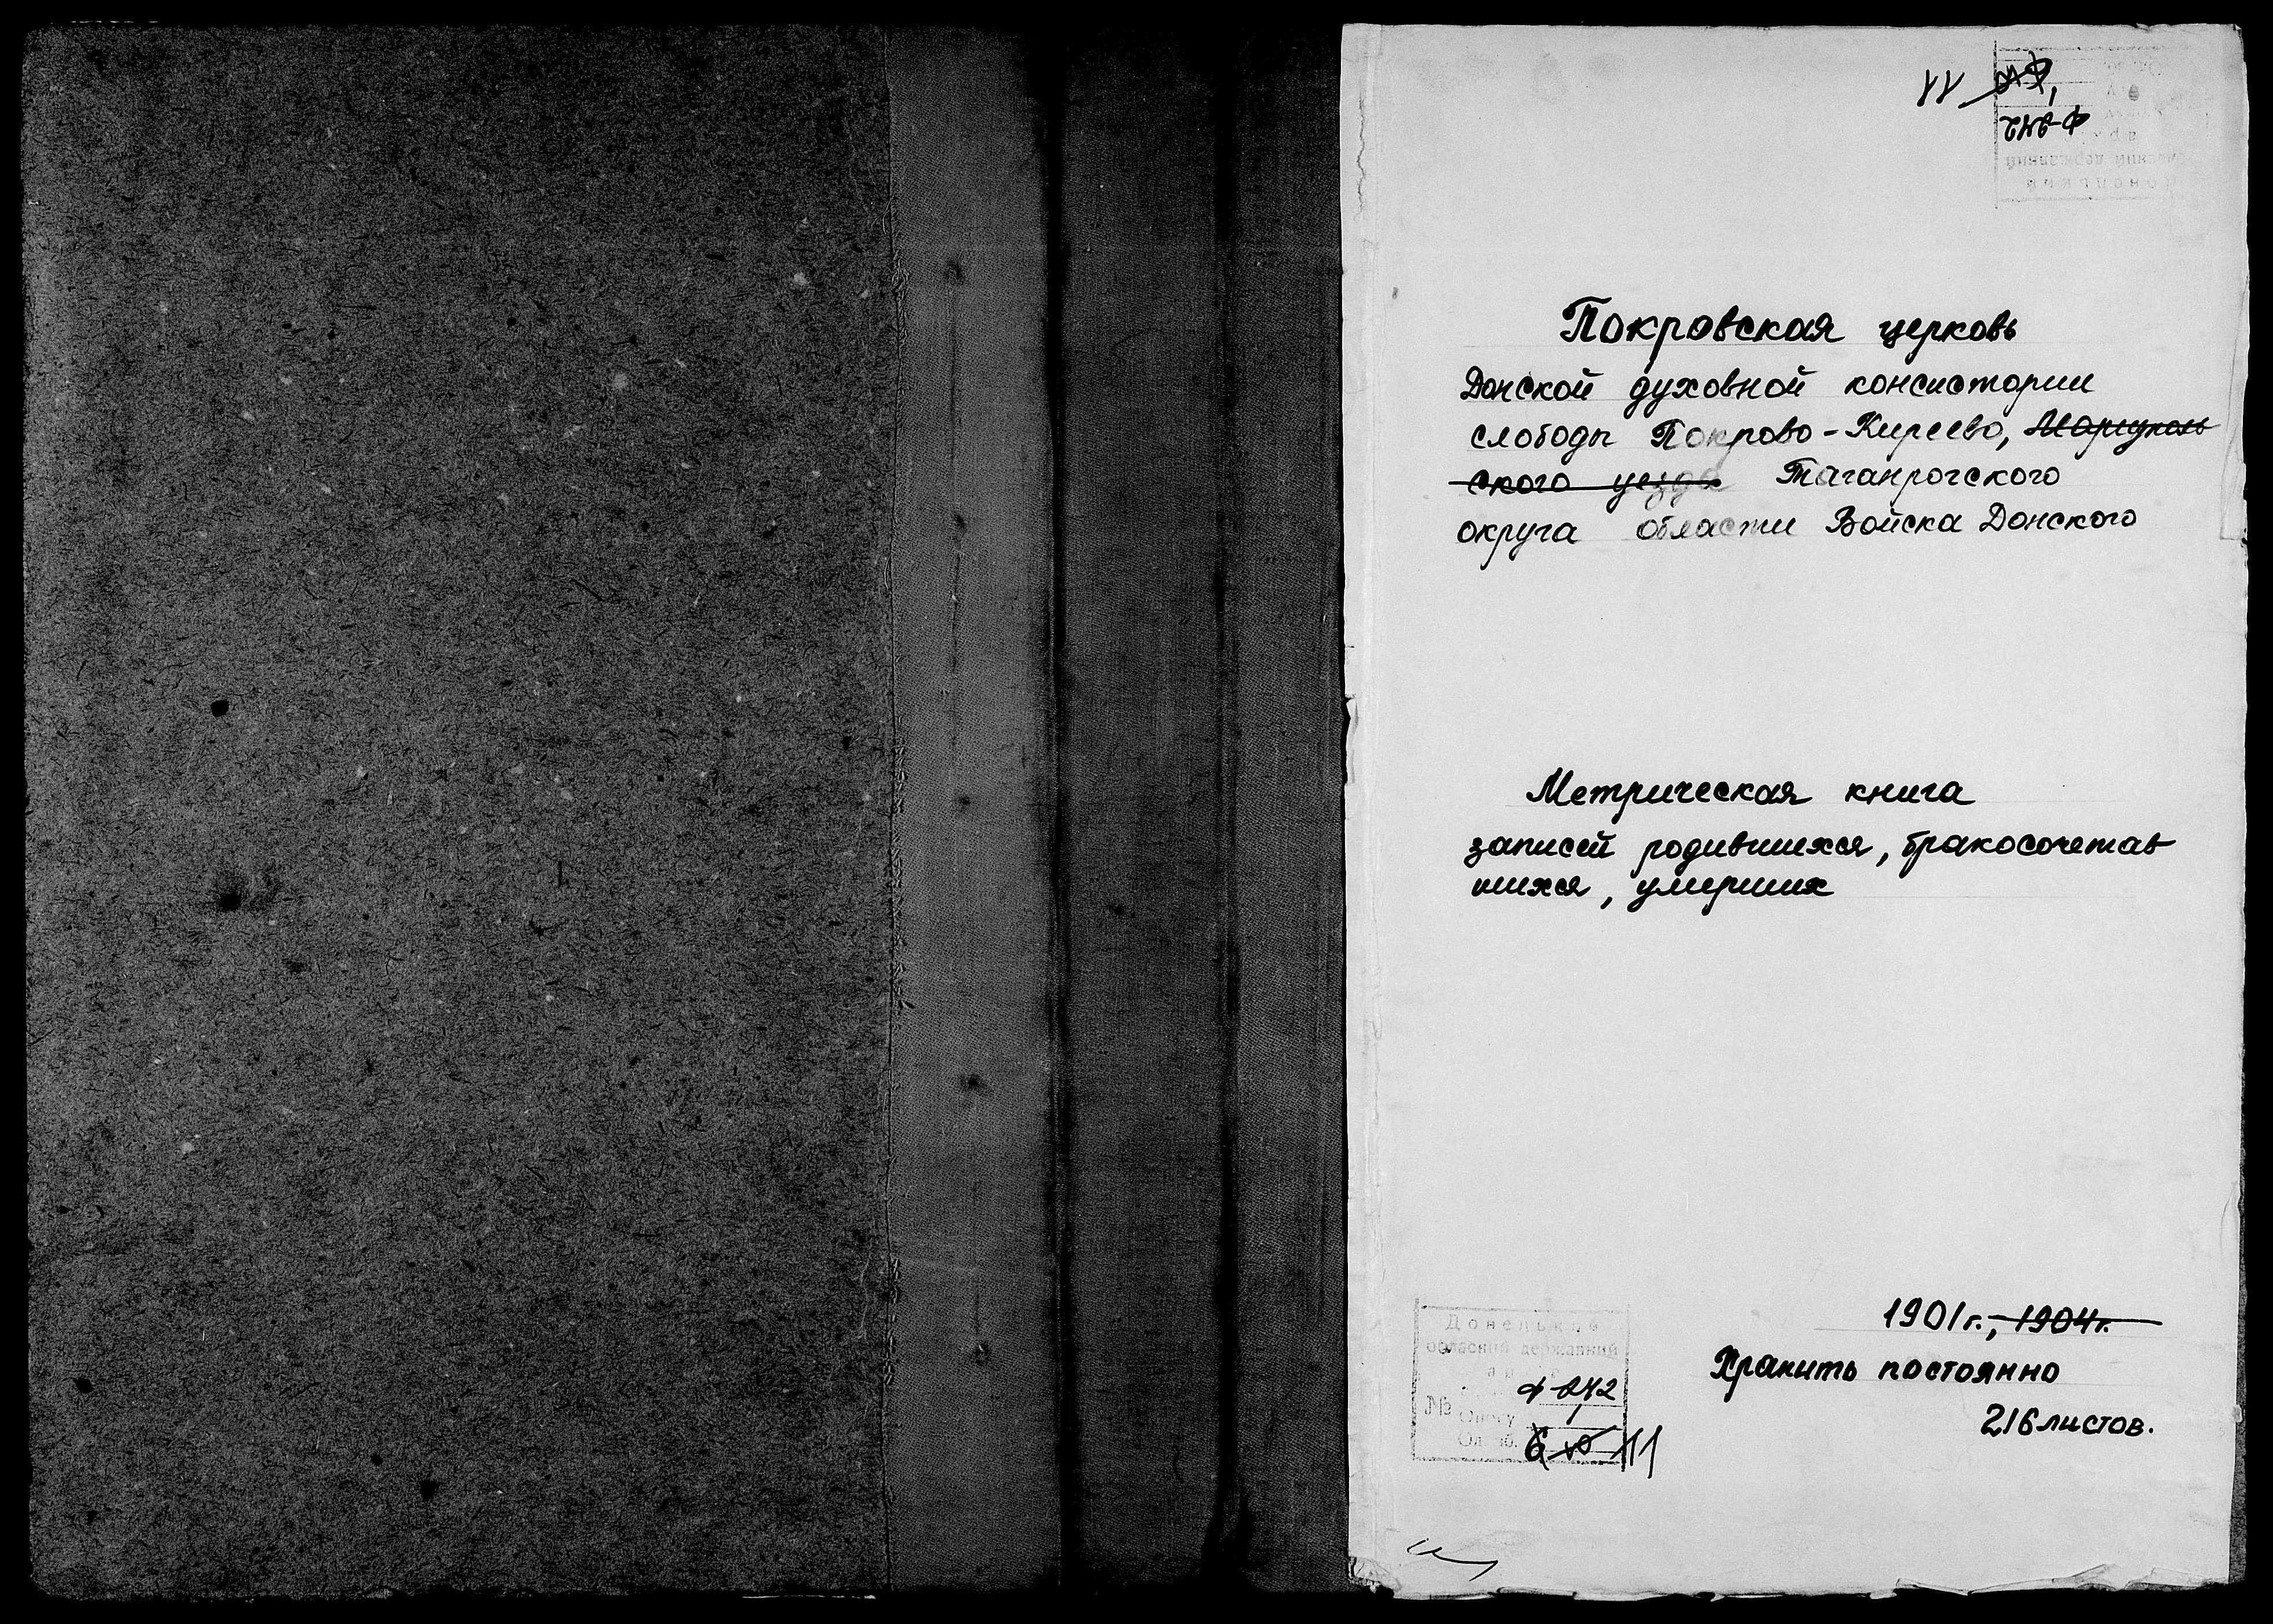 Покровская церковь
Донской духовной консистории
слободы Покрово-Киреево, Мариуполь
ского уезда Таганрогского
округа области Войска Донского
Метрическая книга
записей родившихся, бракосочетав
шихся, умерших
1901г., 1904г.
Хранить постоянно
216 листов.
Донецький
обласний державний
№
11